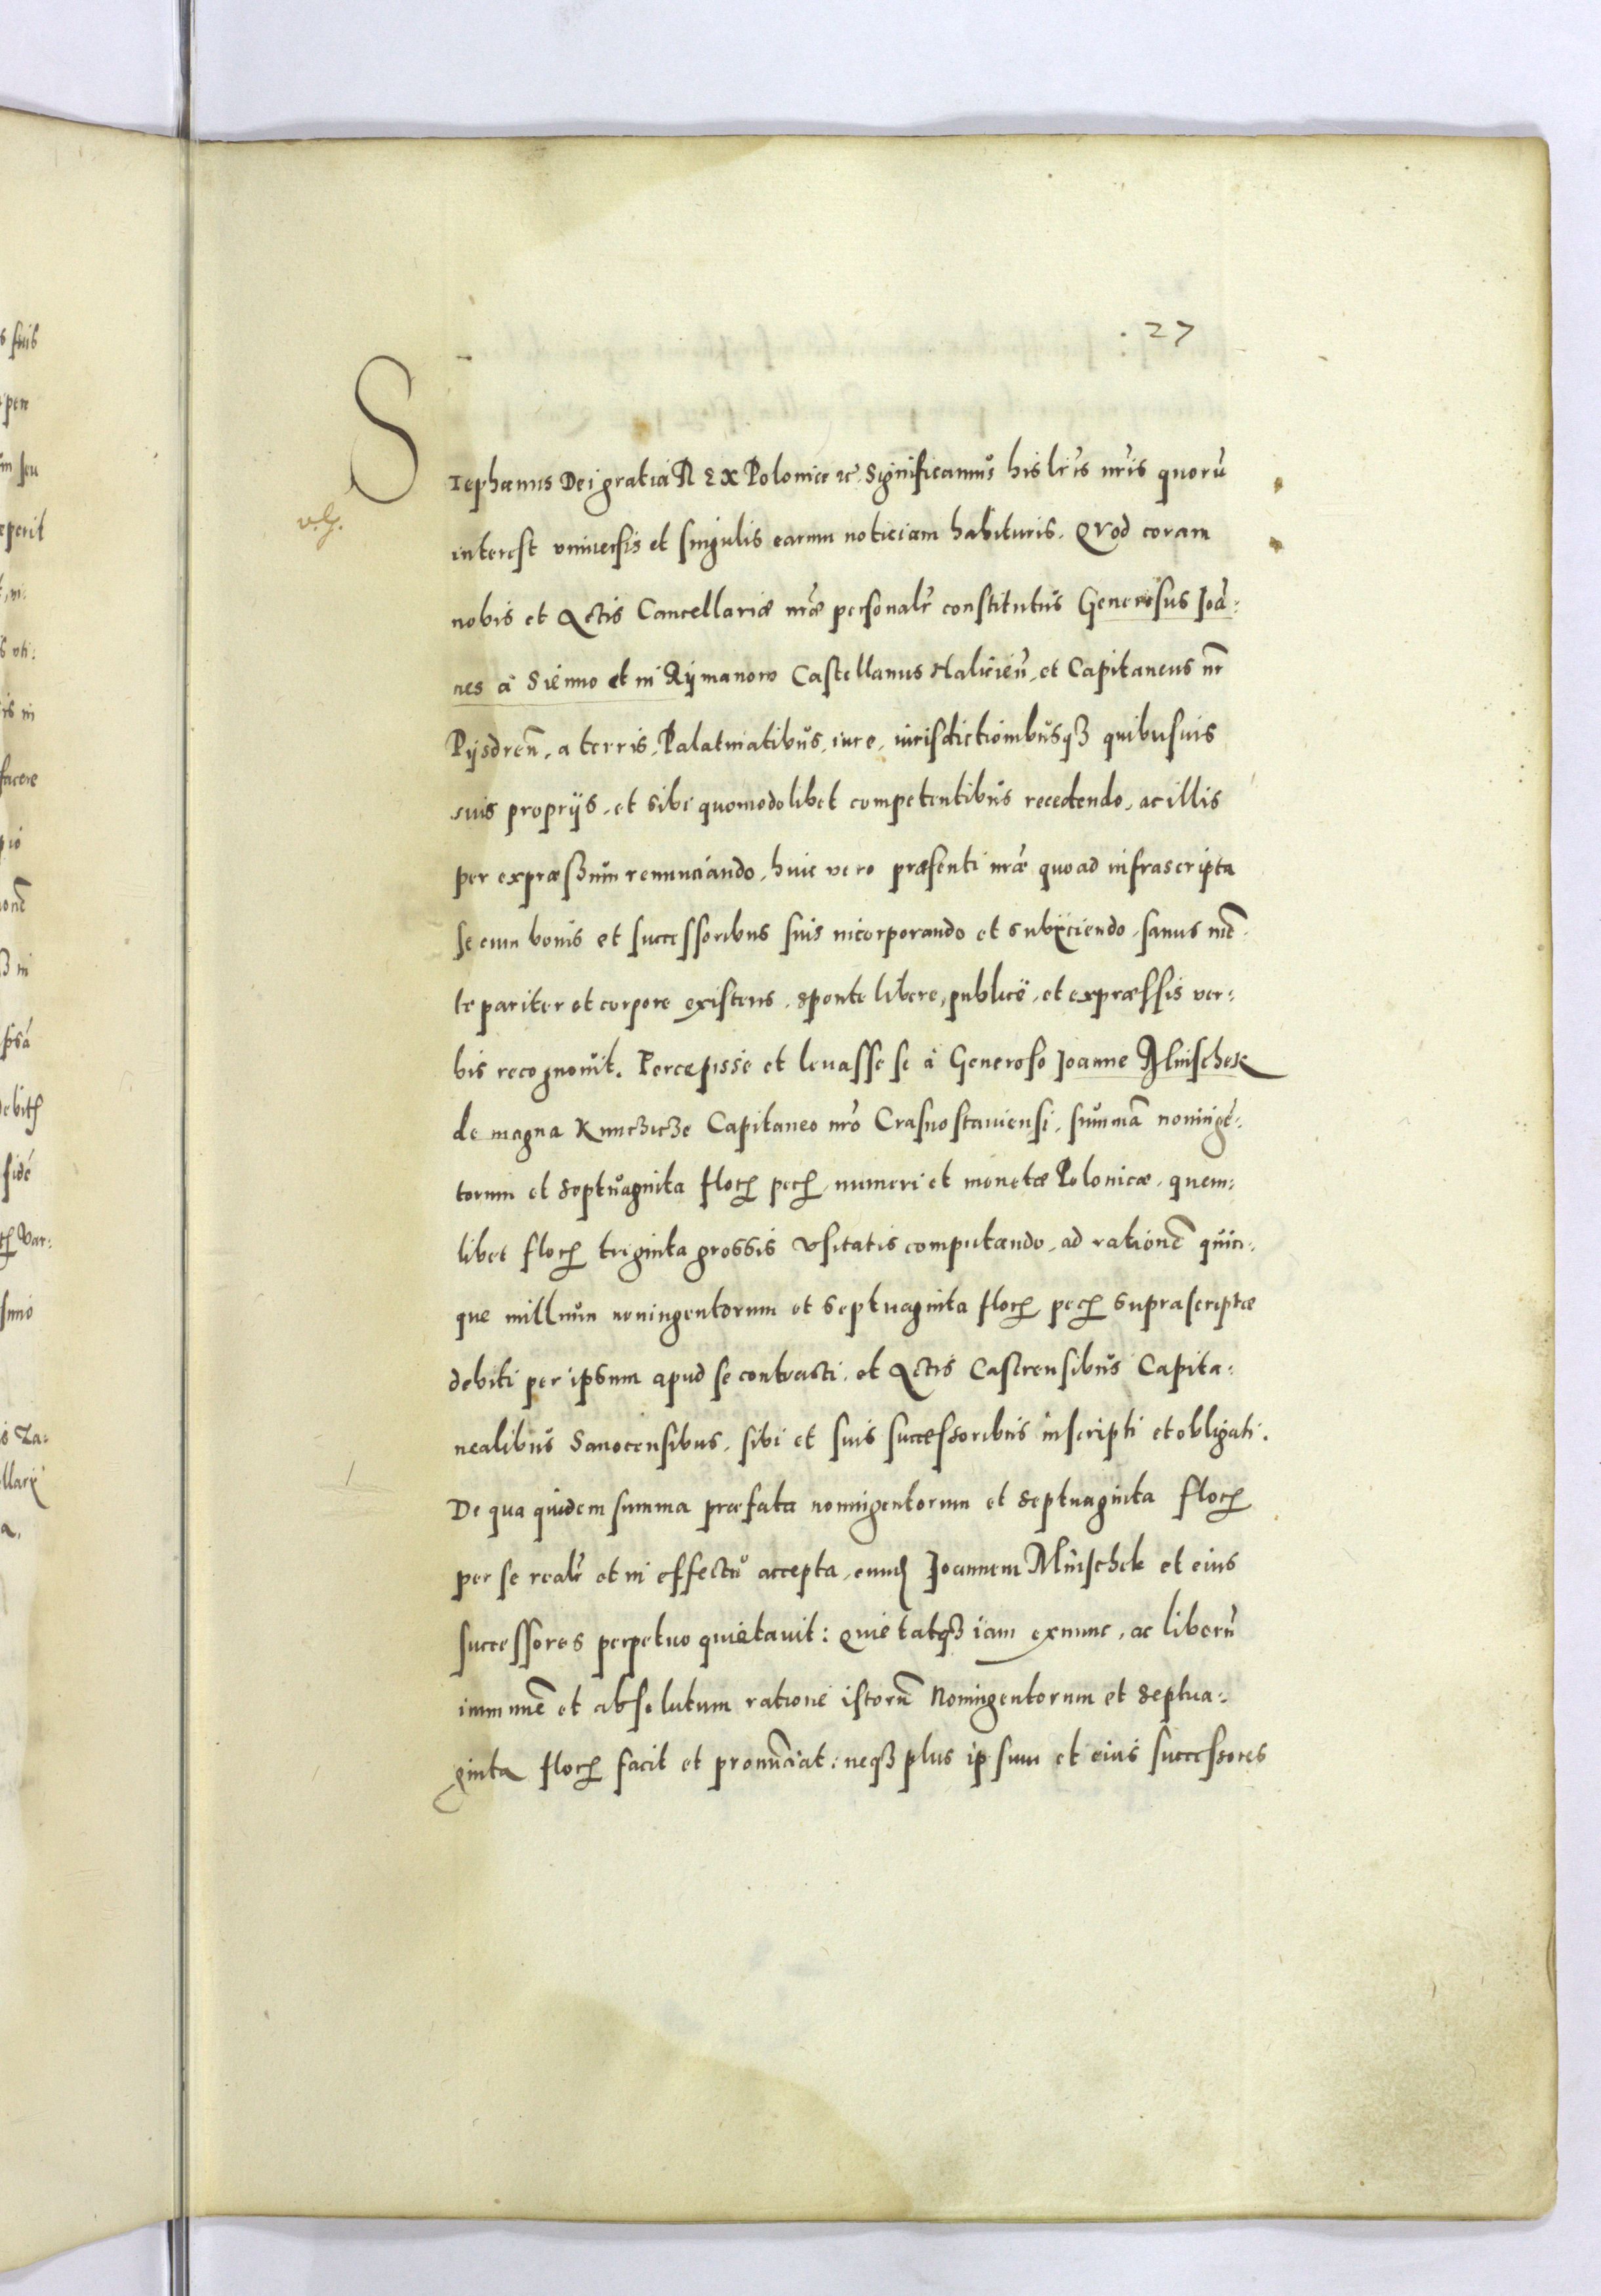 27
Stephanus Dei gratia REX Poloniæ ꝛc. Significamus his lr̃is nr̃is quorũ
v.g.
interest vniuersis et singulis earum noticiam habituris. Qvod coram
nobis et Actis Cancellariæ nr̃æ personalr̃ constitutus Generosus Joã:
nes à Sienno et in Rymanow Castellanus Halicien̄, et Capitaneus nr̃
Pÿsdren̄, a terris, Palatinatibus, iure, iurisdictionibusqȝ quibusuis
suis proprÿs, et sibi quomodolibet competentibus recedendo, ac illis
per expræßum renunciando, huic vero præsenti nr̃æ quoad infrascripta
se cum bonis et successoribus suis incorporando et subÿciendo, sanus mẽ:
te pariter et corpore existens, sponte libere, publicè, et expræssis ver:
bis recognouit. Percepisse et leuasse se à Generoso Joanne Mnischek
de magna Kunczicze Capitaneo nr̃o Crasnostauiensi, summã noningẽ:
torum et septuaginta floꝝ pecꝝ, numeri et monetæ Polonicæ, quem:
libet floꝝ triginta grossis vsitatis computando, ad rationẽ quin:
que millium noningentorum et septuaginta floꝝ pecꝝ suprascriptæ
debiti per ipsum apud se contracti, et Actis Castrensibus Capita:
nealibus Sanocensibus, sibi et suis successoribus inscripti et obligati.
De qua quidem summa præfata noningentorum et septuaginta floꝝ
per se realr̃ et in effectu accepta, eund Joannem Mnischek et eius
successores perpetuo quietauit: quietatqȝ iam exnunc, ac liberũ
immunẽ et absolutum ratione istorũ Noningentorum et septua:
ginta floꝝ facit et pronũciat: neqȝ plus ipsum et eius successores